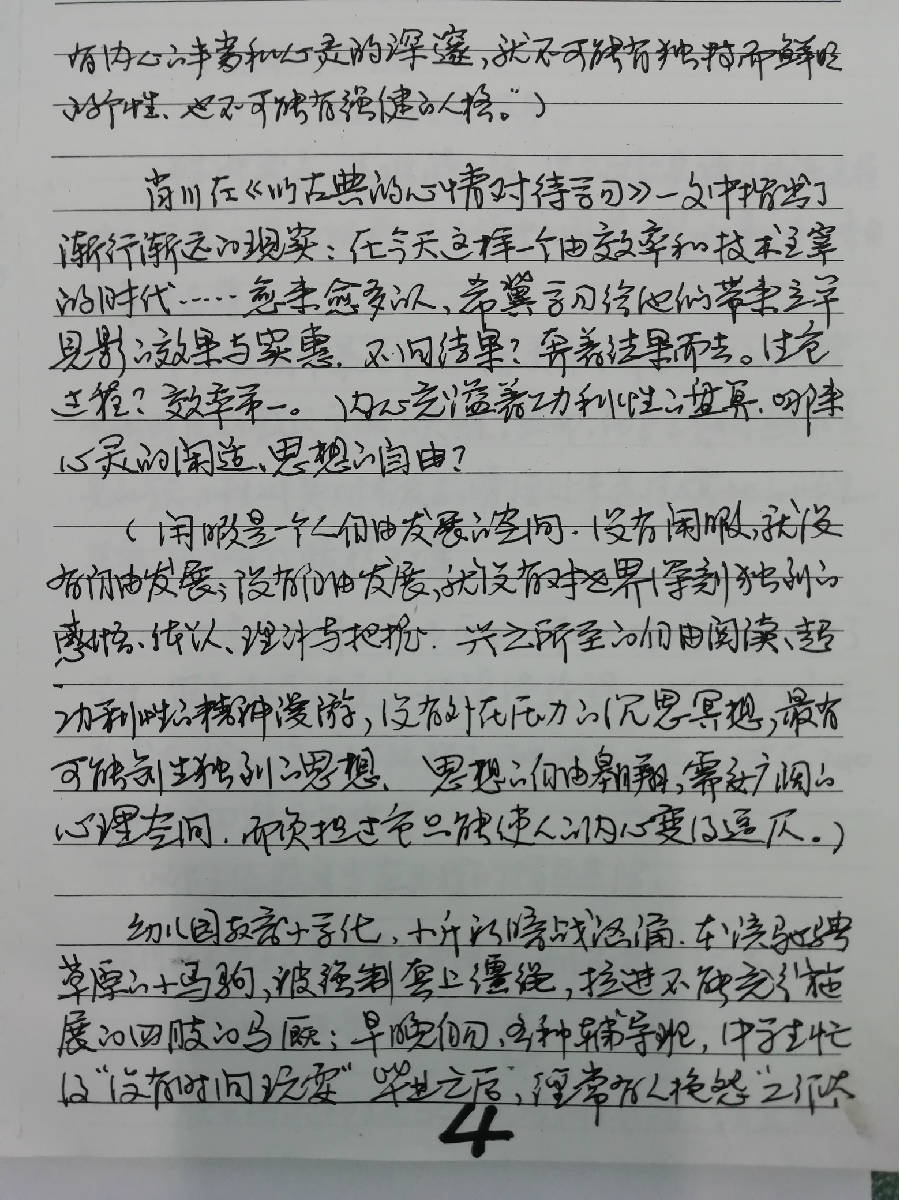 有内心的丰富和心灵的深邃,就不可能有独特而鲜明
的个性、也不可能有强健的人格。")
肖川在《以古典的心情对待学习》一文中指出了
渐行渐远的现实:在今天这样一个由效率和技术主宰
的时代……愈来愈多的人、希冀学习给他们带来立竿
见影的效果与实惠. 不问结果?奔着结果而去。注意
过程?效率第一。内心充溢着功利性的盘算.哪来
心灵的闲适、思想的自由?
(闲暇是一个人自由发展的空间.没有闲暇,就没
有自由发展;没有自由发展,就没有对世界深刻独到的
感悟、体认、理解与把握. 兴之所至的自由阅读、超
功利性的精神漫游,没有外在压力的沉思冥想,最有
可能创生独到的思想. 思想的自由翱翔,需要广阔的
心理空间.而负担过重只能使人的内心变得逼仄。)
幼儿园教育小学化,小升初暗战汹涌.本该驰骋
草原的小马驹,被强制套上缰绳,拉进不能充分施
展的四肢的马厩;早晚自习、各种辅导班,中学生忙
得"没有时间玩耍" 毕业之后,经常有人抱怨"工作太
4